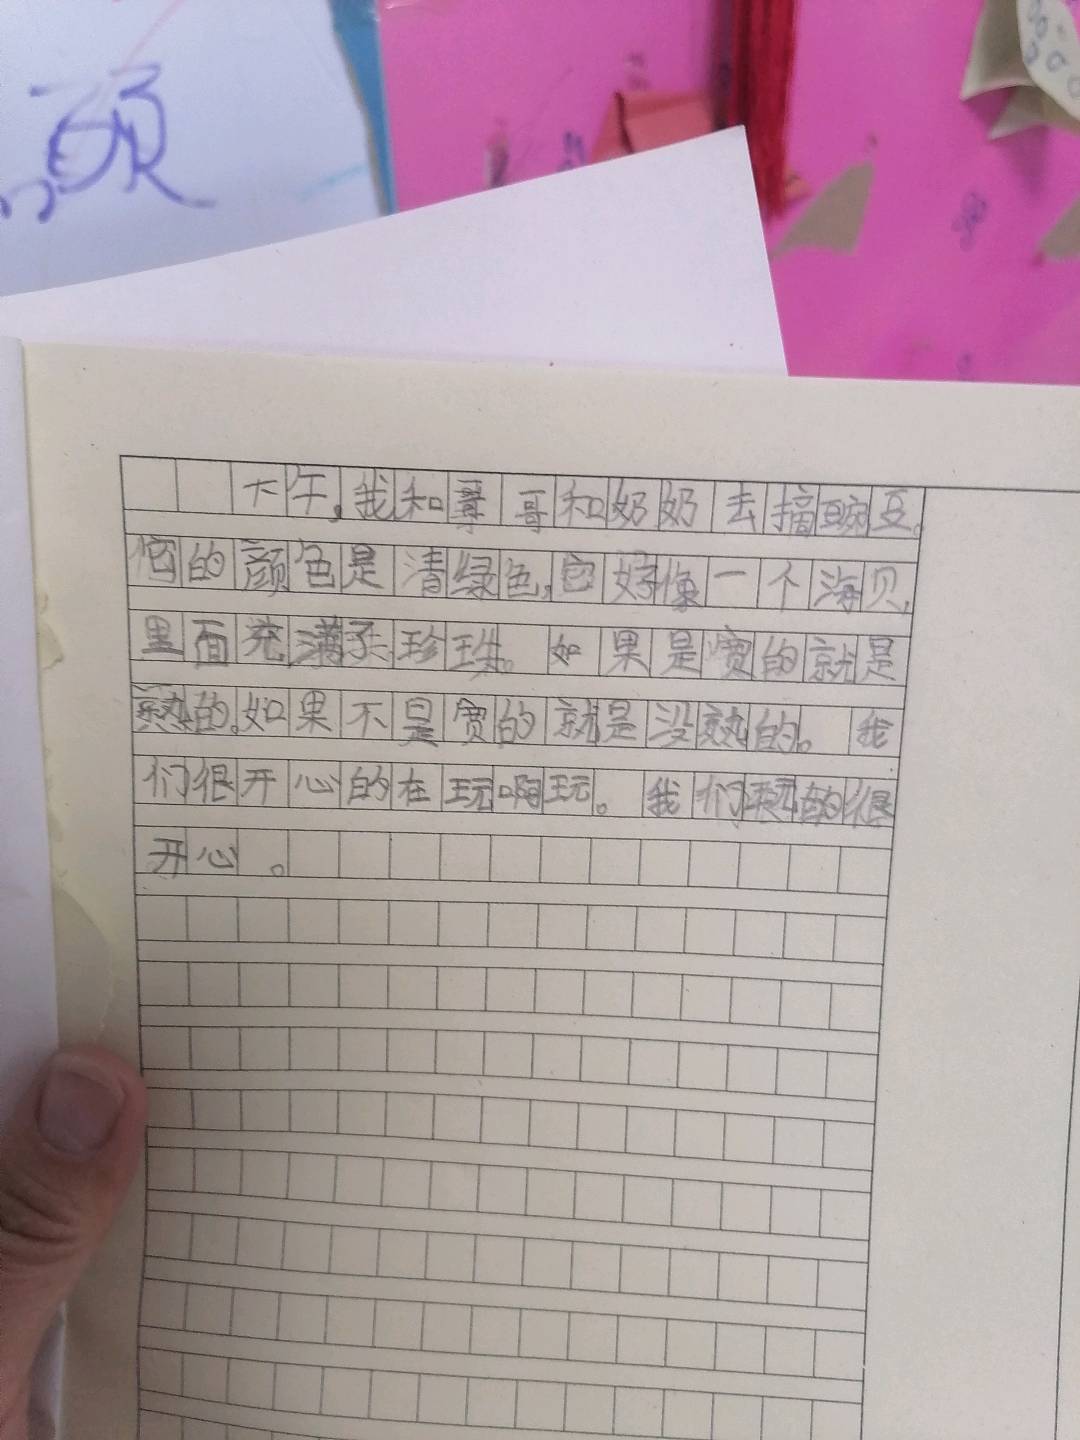 头
下午，我和哥哥和奶奶去摘豌豆。
它的颜色是清绿色，它好像一个海贝，
里面充满了珍珠。如果是宽的就是
熟的。如果不是宽的就是没熟的。我
们很开心的在玩啊玩。我们玩的很
开心。